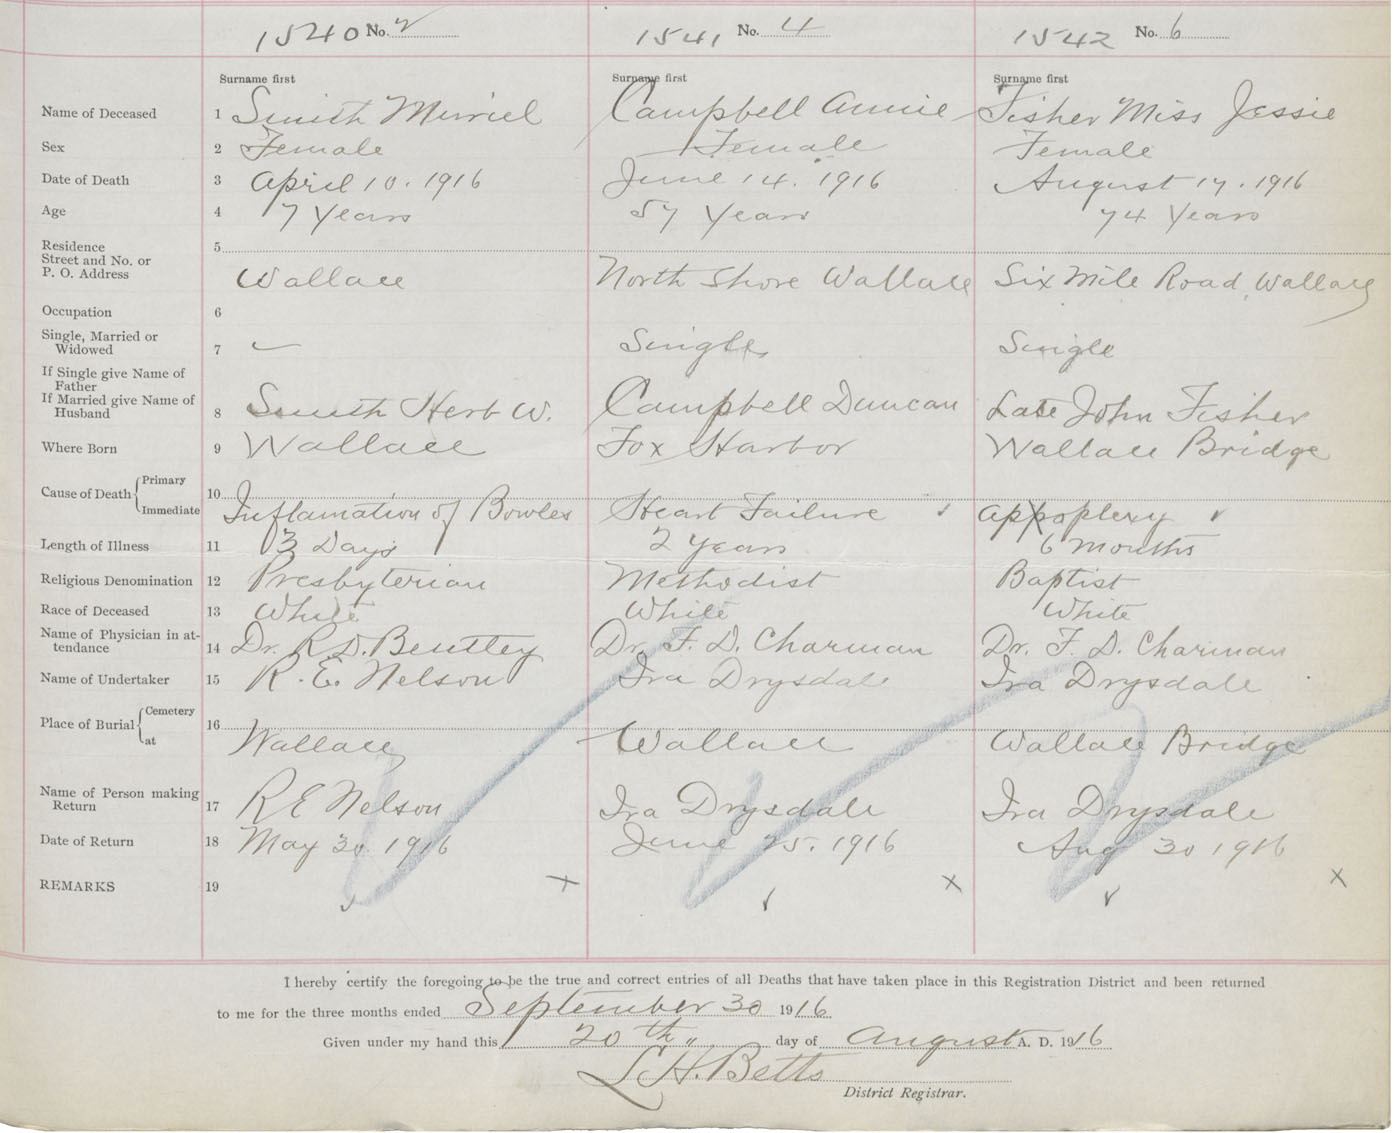 1540 No. 2 1541 No. 4 1542 No. 6
Surname first Surname first Surname first
Name of Deceased 1 Smith Murriel Campbell Annie Fisher Miss Jessie
Sex 2 Female Female Female
Date of Death 3 April 10. 1916 June 14. 1916 August 17. 1916
Age 4 7 Years 57 Years 74 Years
Residence 5
Street and No. or
P. O. Address Wallace North Shore Wallace Six Mile Road, Wallace
Occupation 6
Single, Married or
Widowed 7 Single Single
If Single give Name of
Father
If Married give Name of
Husband 8 Smith Herb W. Campbell Duncan Late John Fisher
Where Born 9 Wallace Fox Harbor Wallace Bridge
Cause of Death { Primary 10
Immediate Inflamation of Bowles Heart Failure Appoplexy
Length of Illness 11 3 Days 2 Years 6 months
Religious Denomination 12 Presbyterian Methodist Baptist
Race of Deceased 13 White White White
Name of Physician in at-
tendance 14 Dr. R. D. Benttey Dr. F. D. Charman Dr. F. D. Charman
Name of Undertaker 15 R. E. Nelson Ira Drysdale Ira Drysdale
Place of Burial { Cemetery 16
at Wallace Wallace Wallace Bridge
Name of Person making
Return 17 R E Nelson Ira Drysdale Ira Drysdale
Date of Return 18 May 30 1916 June 25. 1916 Aug 30 1916
REMARKS 19 x x x
I hereby certify the foregoing to be the true and correct entries of all Deaths that have taken place in this Registration District and been returned
to me for the three months ended September 30 1916
Given under my hand this 20th " day of August A. D. 1916
L H. Betts
District Registrar.